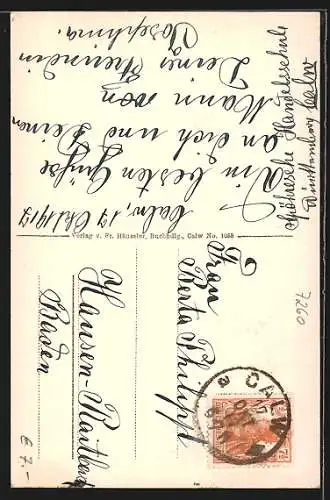 Calw, 17 Okt 1917
Die besten Grüße
an dich und deinen
Mann von
Deiner Freundin
Josephina.
Spöhrersche Handelsschule
Württemberg Calw
Verlag v. Fr. Häussler, Buchhdlg., Calw No. 1058
Frau
Berta Philipp
Hausen-Raitbach
Baden
CALW
7½
7260
€ 7.-